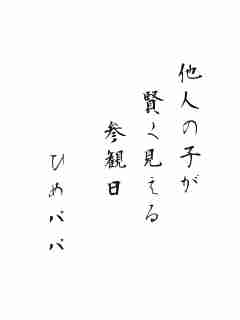 他人の子が
賢く見える
参観日
ひめパパ